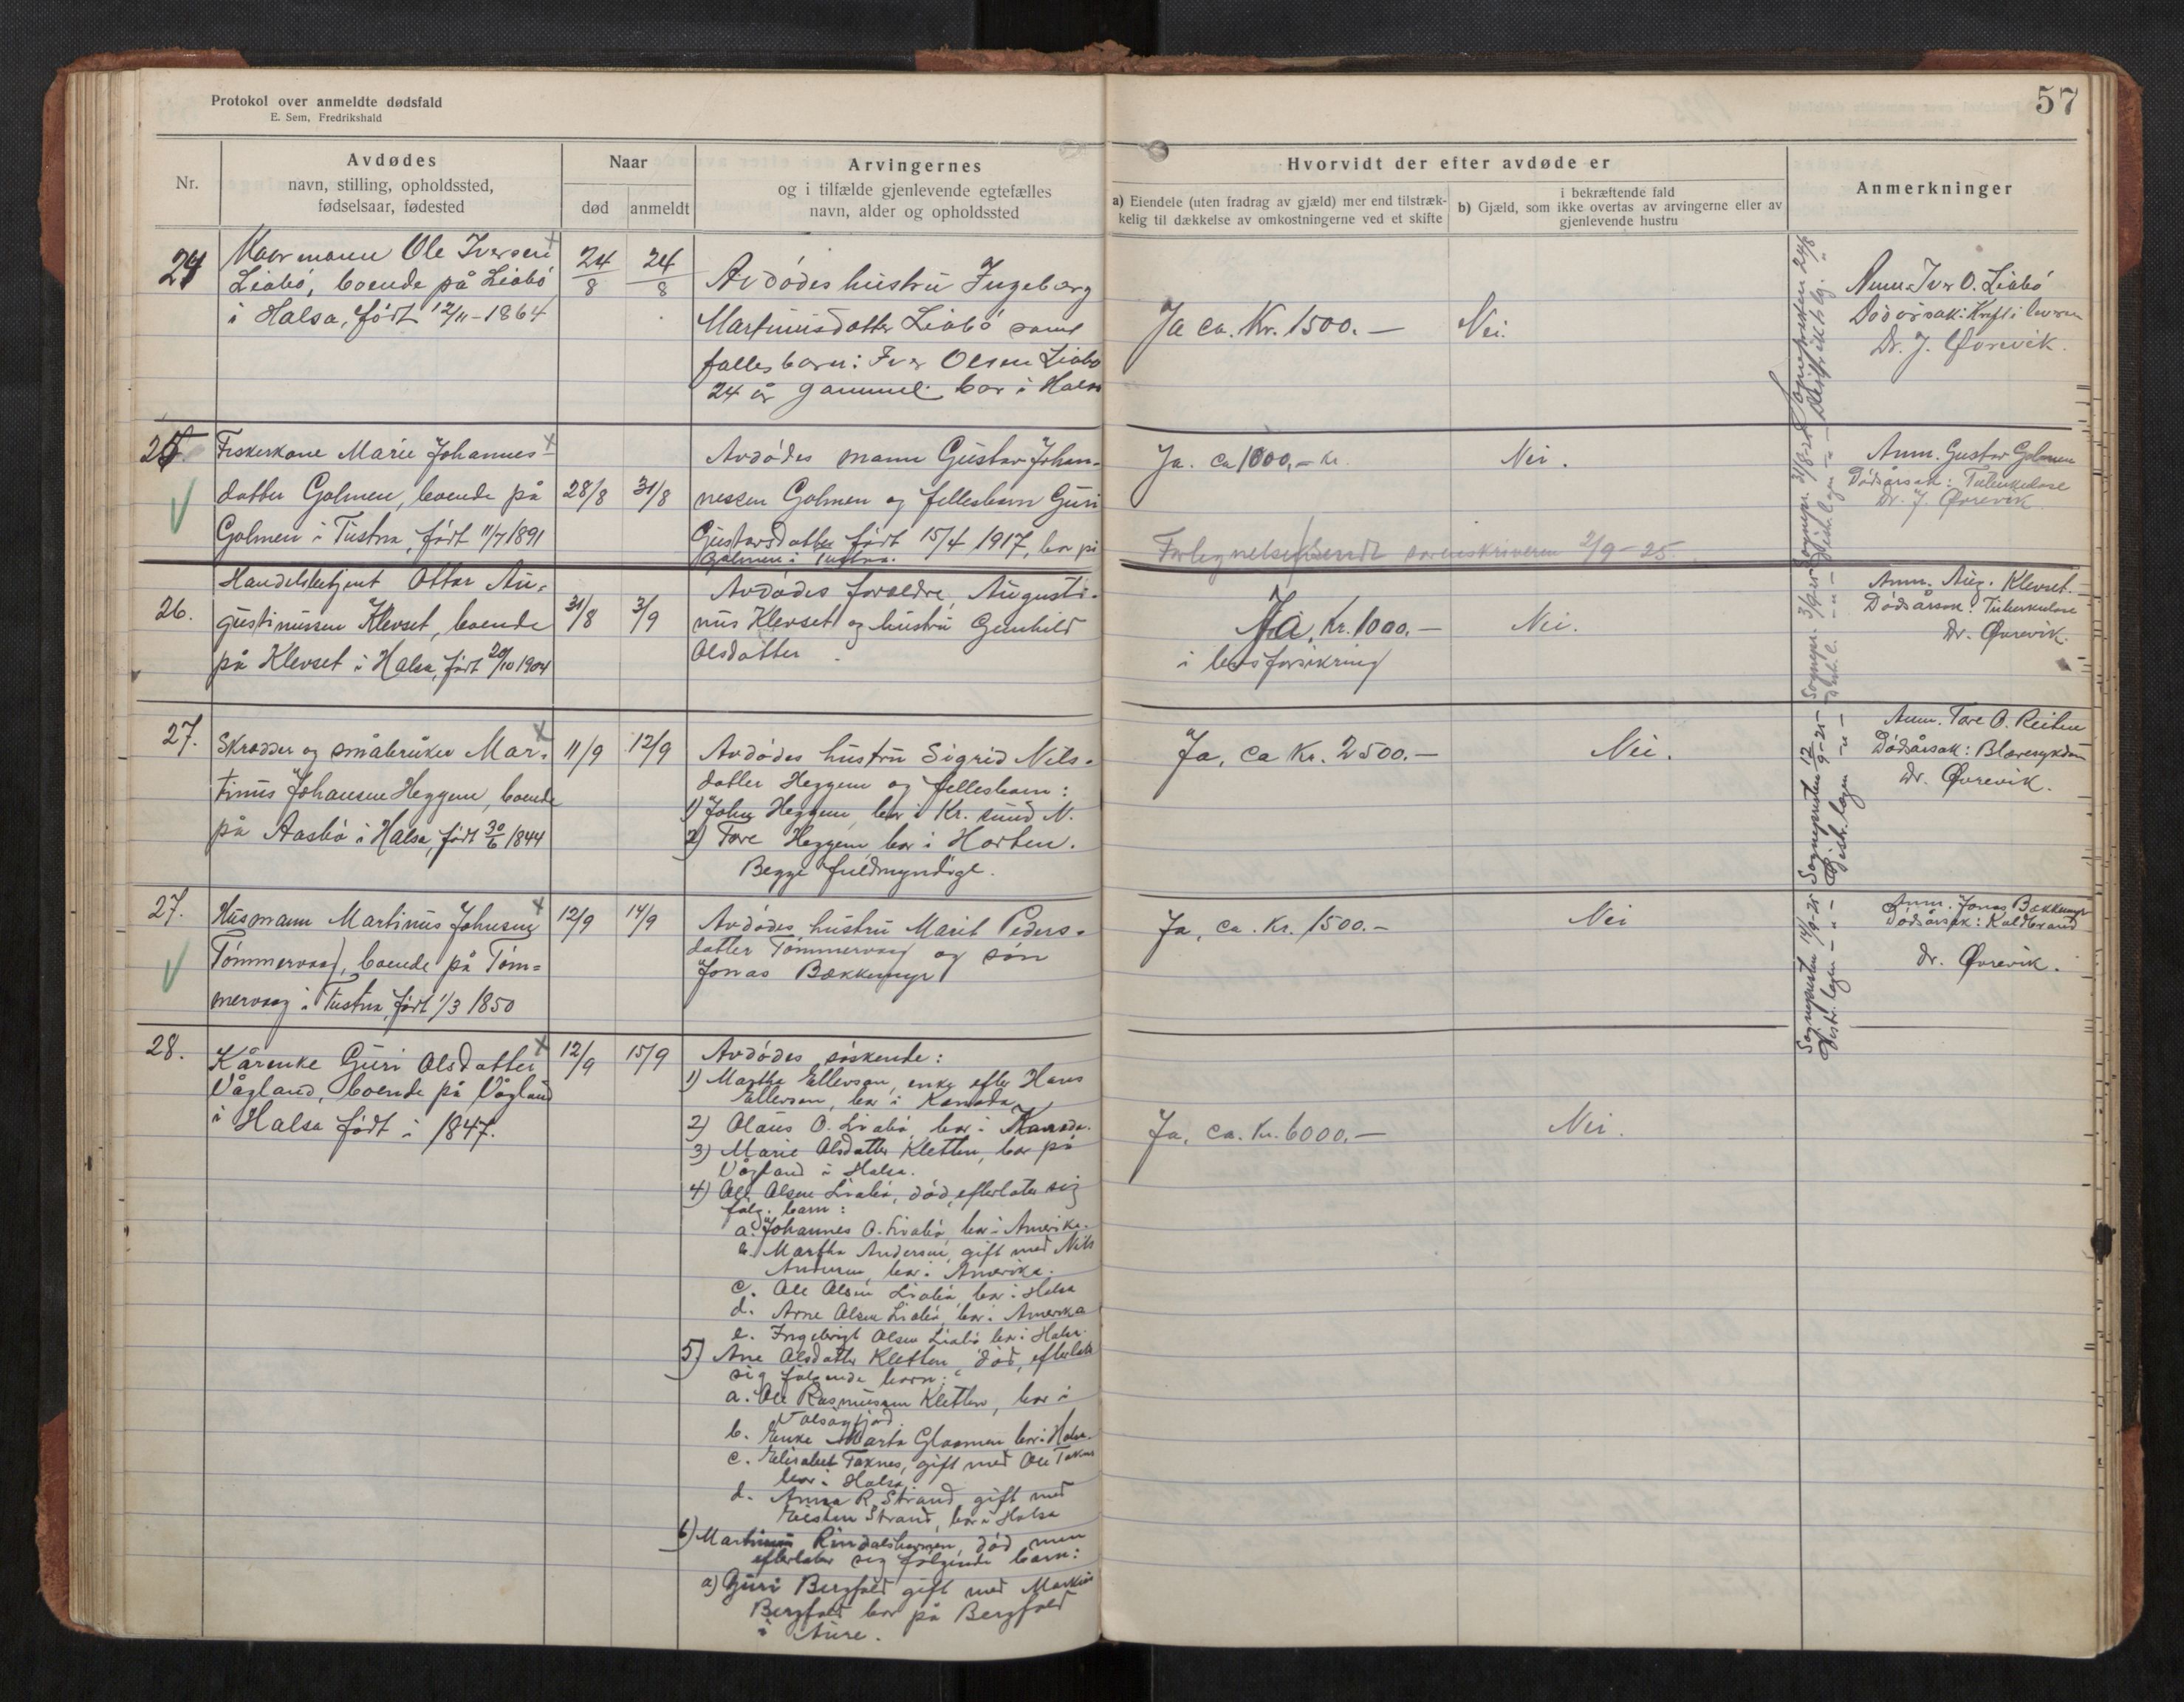 Protokol over anmeldte dødsfald
E. Sem, Fredrikshald
57
Nr.
Avdødes
navn, stilling, opholdssted,
fødselsaar, fødested
Naar
død
anmeldt
Arvingernes
og i tilfælde gjenlevende egtefælles
navn, alder og opholdssted
Hvorvidt der efter avdøde er
a) Eiendele (uten fradrag av gjæld) mer end tilstræk-
kelig til dækkelse av omkostningerne ved et skifte
i bekræftende fald
b) Gjæld, som ikke overtas av arvingerne eller av
gjenlevende hustru
Anmerkninger
24
Kaarmann Ole Iversen
Liabø, boende på Liabø
i Halsa, født 12/11-1864
24/8
24/8
Avdødes hustru Ingeborg
Martinusdatter Liabø samt
fellesbarn: Iver Olsen Liabø
24 år gammel bor i Halsa
Ja ca. Kr. 1500.-
Nei.
Anm. Iver O. Liabø
Dødsårsak: Kreft i leveren
Dr. J. Øvrevik.
Sognepresten 24/8
Distriktslg. "
25
Fiskerkone Marie Johannes-
datter Golmen, boende på
Golmen i Tustna, født 11/7 1891
28/8
31/8
Avdødes mann Gustav Johan-
nessen Golmen og fellesbarn Guri
Gustavsdatter født 15/4 1917, bor på
Golmen i Tustna.
Ja. ca 1000,- kr.
Nei.
Fortegnelse sendt sorenskriveren 2/9-25.
Anm. Gustav Golmen
Dødsårsak: Tuberkulose
Dr. J. Øvrevik
Sognepr. 31/8-25
Distr.lægen - " -
26.
Handelsbetjent Ottar Au-
gustinussen Klevset, boende
på Klevset i Halsa, født 20/10 1904
31/8
3/9
Avdødes foreldre, Augusti-
nus Klevset og hustru Gunhild
Olsdatter.
Ja, Kr. 1000.-
i livsforsikring
Nei.
Anm. Aug. Klevset.
Dødsårsak: Tuberkulose
Dr. Øvrevik.
Sognepr. 3/9-25
Distr.l. - " -
27.
Skrædder og småbruker Mar-
tinus Johansen Heggem, boende
på Aasbø i Halsa, født 30/6 1844
11/9
12/9
Avdødes hustru Sigrid Nils-
datter Heggem og fellesbarn:
1) John Heggem, bor i Kr.sund N.
2) Tore Heggem bor i Horten.
Begge fuldmyndige.
Ja, ca Kr. 2500.-
Nei.
Anm. Tore O. Reiten
Dødsårsak: Blæresykdom
Dr. Øvrevik.
Sognepresten 12/9-25
Distr. lægen - " -
27.
Husmann Martinus Johnsen
Tømmervaag, boende på Tøm-
mervaag i Tustna, født 1/3 1850
12/9
14/9
Avdødes hustru Marit Peders-
datter Tømmervaag og søn
Jonas Bækkemyr
Ja, ca. Kr. 1500.-
Nei
Anm. Jonas Bækkemyr
Dødsårsak: Koldbrand
Dr. Øvrevik.
Sognepresten 14/9-25
Distr. lægen - " -
28.
Kårenke Guri Olsdatter
Vågland, boende på Vågland
i Halsa født i 1847.
12/9
15/9
Avdødes søskende:
1) Martha Ellevsen, enke efter Hans
Ellevsen, bor i Kanada
2) Olaus O. Liabø, bor i Kanada.
3) Marie Olsdatter Kletten, bor på
Vågland i Halsa.
4) Ole Olsen Liabø, død, efterlater sig
følg. barn:
a. Johannes O. Liabø, bor i Amerika.
b. Martha Andersen, gift med Nils
Andersen, bor i Amerika.
c. Ole Olsen Liabø bor i Halsa
d. Arne Olsen Liabø, bor i Amerika
e. Ingebrigt Olsen Liabø bor i Halsa.
5) Ane Olsdatter Kletten, død, efterlater
sig følgende barn:
a. Ole Rasmussen Kletten, bor i
Valsøyfjord.
b. Enke Marta Glaamen bor i Halsa.
c. Elisabet Taknes, gift med Ole Taknes
bor i Halsa
d. Anna R. Strand gift med
Eisten Strand, bor i Halsa
6) Rindalshamren, død men
efterlater sig følgende barn:
a) Guri Bergfald gift med Markus
Bergfald bor på Bergfald
i Aure.
Ja, ca. Kr. 6000.-
Nei.